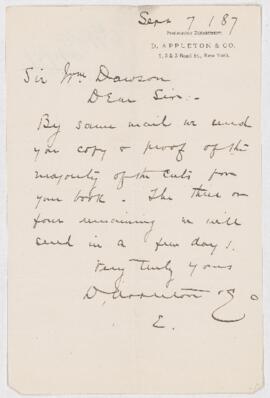 Sept 7 /87
D. APPLETON & CO.
1, 3 & 5 Bond St., New York.
Sir Wm Dawson
Dear Sir:-
By same mail we send
you copy & proof of the
majority of the cuts for
your book. The three or
four remaining we will
send in a few days.
Very truly yours
D. Appleton & Co
E.